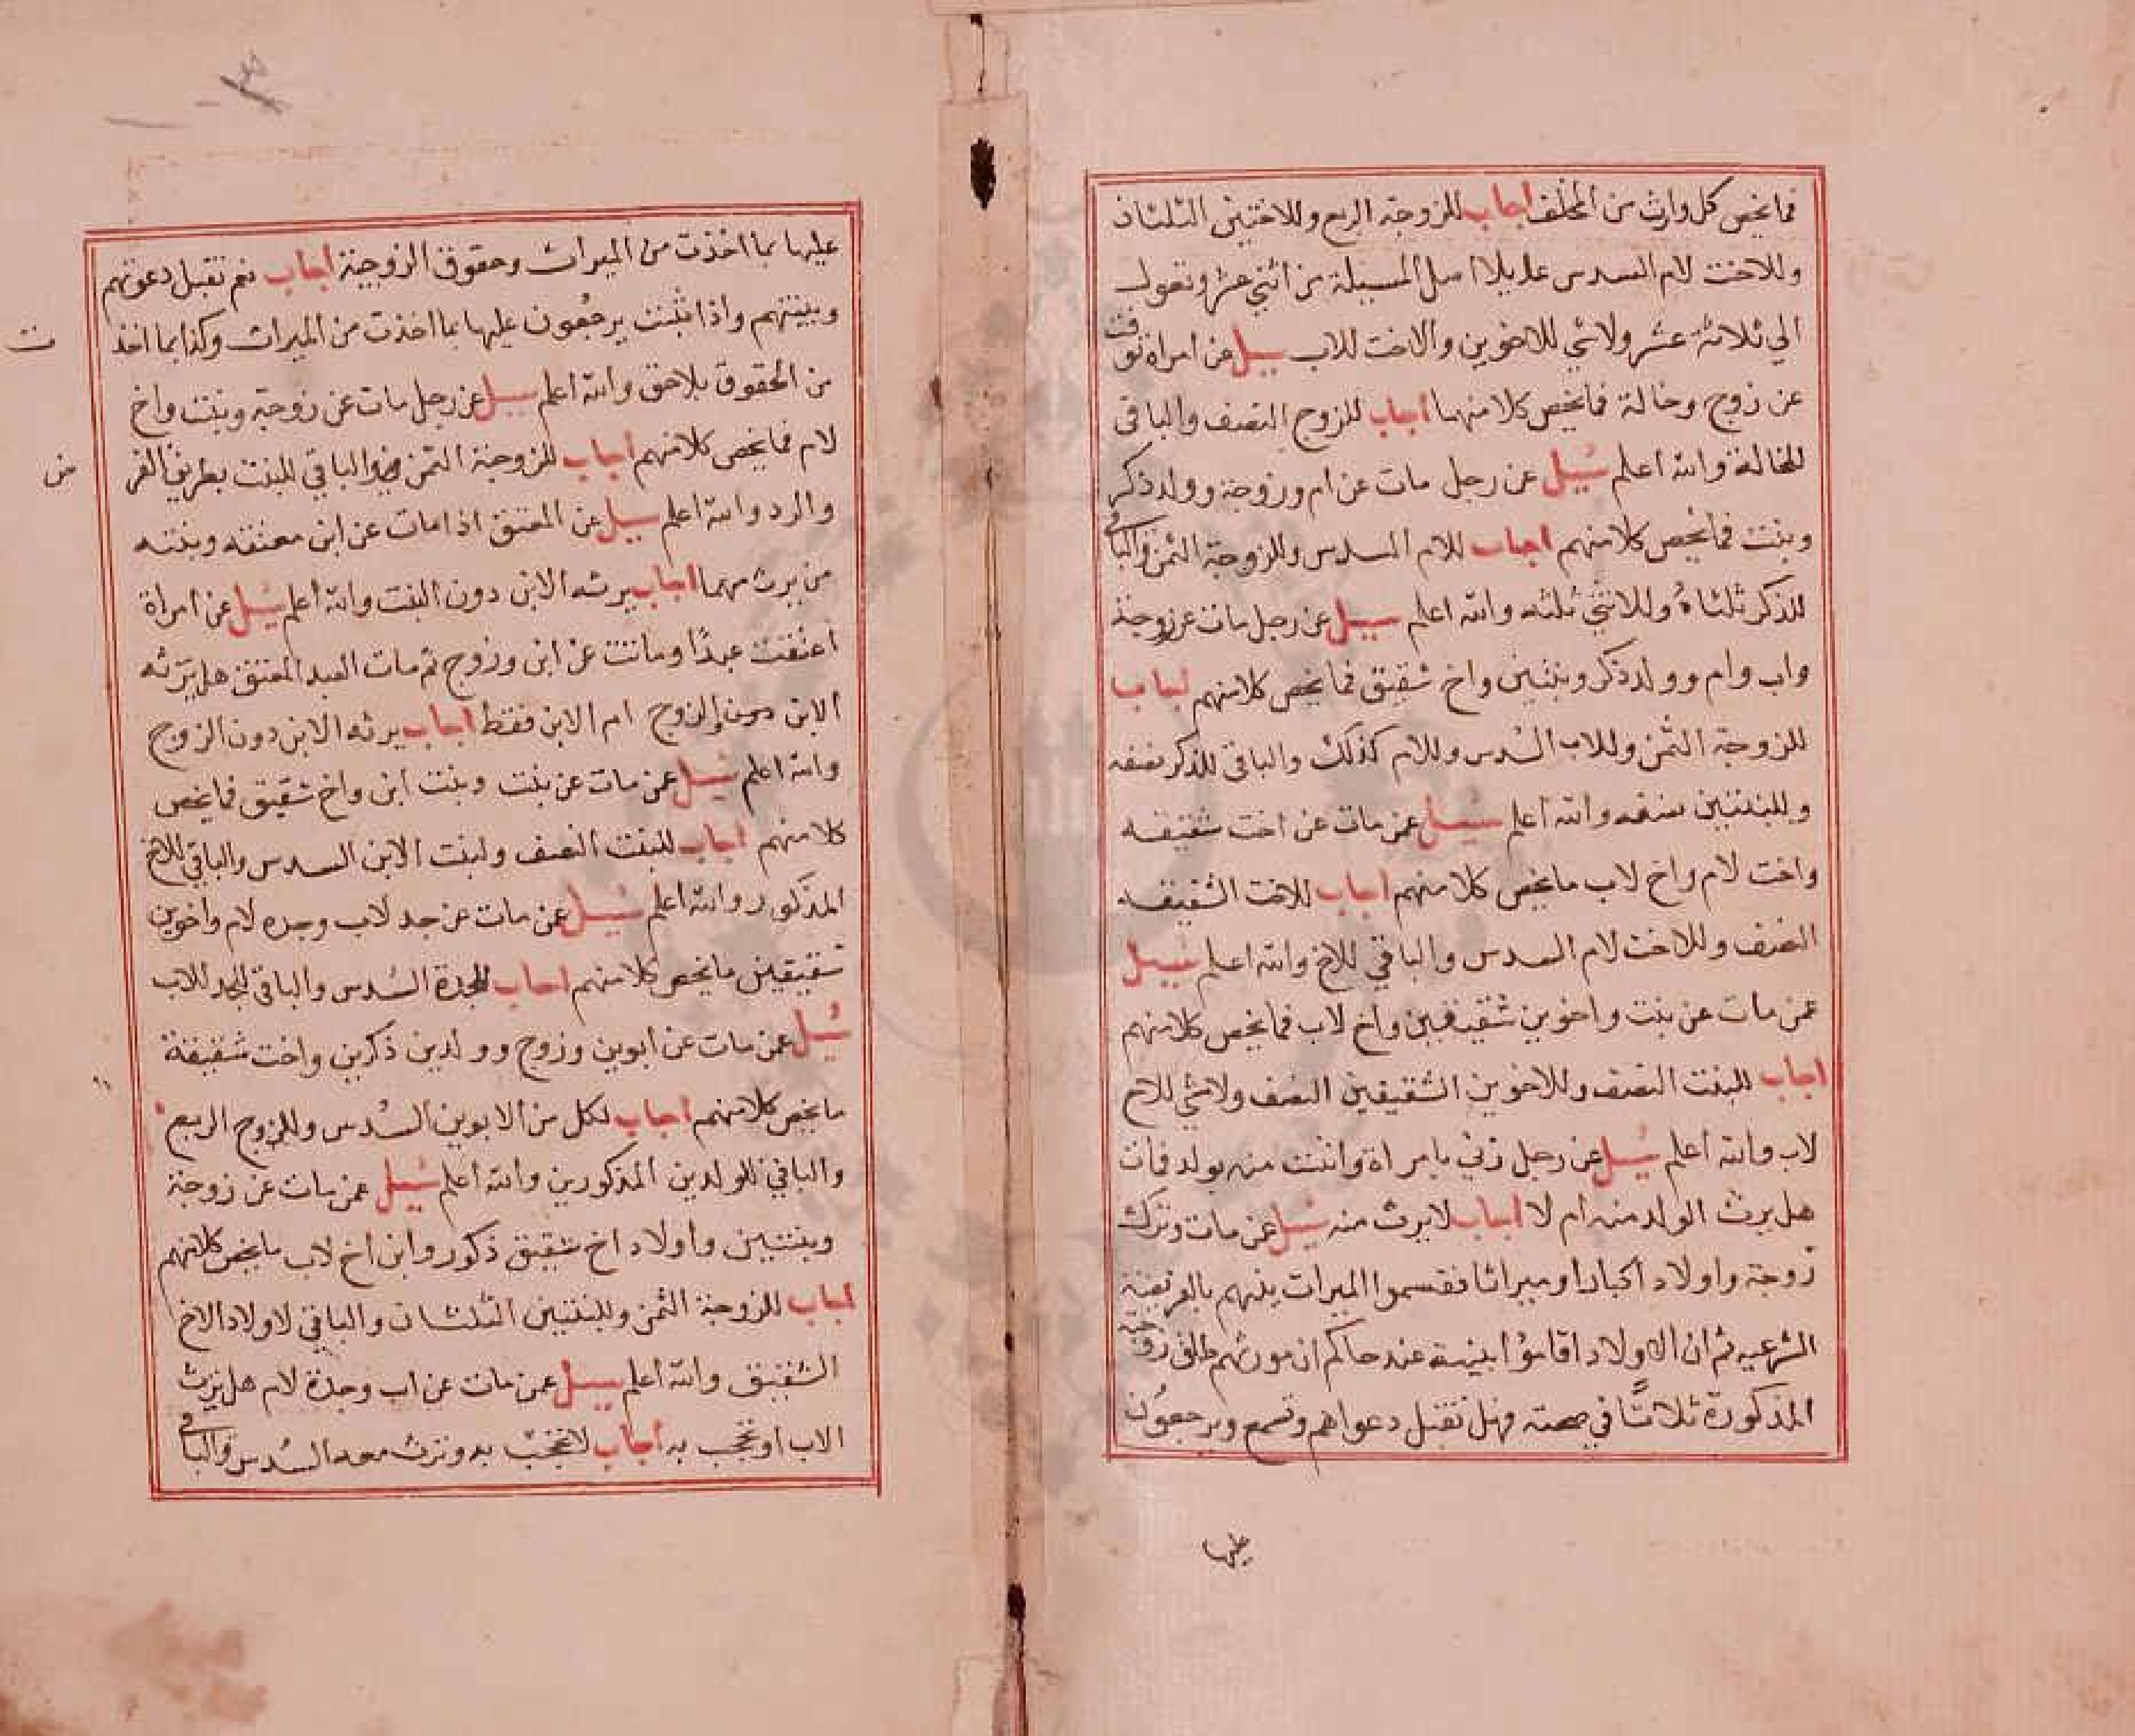 فما يخص كل وارث من المخلف اجاب للزوجة الربع وللاختين الثلثان
وللاخت لام السدس عايلا اصل المسيلة من اثني عشر وتعول
الي ثلاثة عشر ولا شي للاخوين والاخت للاب سيل عن امراة توفت
عن زوج وخالة فما يخص كلا منهما اجاب للزوج النصف والباقي
للخالة والله اعلم سيل عن رجل مات عن ام وزوجة وولد ذكر
وبنت فما يخص كلا منهم اجاب للام السدس وللزوجة الثمن والباقي
للذكر ثلثاه وللانثي ثلثه والله اعلم سيل عن رجل مات عن زوجة
واب وام وولد ذكر وبنتين واخ شقيق فما يخص كلا منهم اجاب
للزوجة الثمن وللاب السدس وللام كذلك والباقي للذكر نصفه
وللبنتين نصفه والله اعلم سيل عمن مات عن اخت شقيقه
واخت لام واخ لاب ما يخص كلا منهم اجاب للاخت الشقيقه
النصف وللاخت لام السدس والباقي للاخ والله اعلم سيل
عمن مات عن بنت واخوين شقيقين واخ لاب فما يخص كلا منهم
اجاب للبنت النصف وللاخوين الشقيقين النصف ولا شي للاخ
لاب والله اعلم سيل عن رجل زني بامراة واتت منه بولد فمات
هل يرث الولد منه ام لا اجاب لا يرث منه سيل عن مات وترك
زوجة واولاد اكبارا وميراثا فقسموا الميراث بينهم بالفريضة
الشرعيه ثم ان الاولاد اقاموا بينة عند حاكم ان مورثهم طلق زوجته
المذكورة ثلاثا في صحته فهل تقبل دعواهم وتسمع ويرجعون
عليها
عليها بما اخذت من الميراث وحقوق الزوجية اجاب نعم تقبل دعوتهم
وبينتهم واذا ثبتت يرجعون عليها بما اخذت من الميراث وكذا بما اخذ
ت
من الحقوق بلا حق والله اعلم سيل عن رجل مات عن زوجة وبنت واخ
لام فما يخص كلا منهم اجاب للزوجة الثمن والباقي للبنت بطريق الفر
ض
والرد والله اعلم سيل عن المعتق اذا مات عن ابن معتقه وبنته
من يرث منهما اجاب يرثه الابن دون البنت والله اعلم سيل عن امراة
اعتقت عبدا وماتت عن ابن وزوج ثم مات العبد المعتق هل يرثه
الابن والزوج ام الابن فقط اجاب يرثه الابن دون الزوج
والله اعلم سيل عمن مات عن بنت وبنت ابن واخ شقيق فما يخص
كلا منهم اجاب للبنت النصف ولبنت الابن السدس والباقي للاخ
المذكور والله اعلم سيل عمن مات عن جد لاب وجده لام واخوين
شقيقين ما يخص كلا منهم اجاب للجدة السدس والباقي للجد للاب
سيل عمن مات عن ابوين وزوج وولدين ذكرين واخت شقيقة
ما يخص كلا منهم اجاب لكل من الابوين السدس وللزوج الربع
والباقي للولدين المذكورين والله اعلم سيل عمن مات عن زوجة
وبنتين واولاد اخ شقيق ذكور وابن اخ لاب ما يخص كلا منهم
اجاب للزوجة الثمن وللبنتين الثلثان والباقي لاولاد الاخ
الشقيق والله اعلم سيل عمن مات عن اب وجدة لام هل ترث
الاب او تحجب به اجاب لا تحجب به وترث معه السدس والباقي